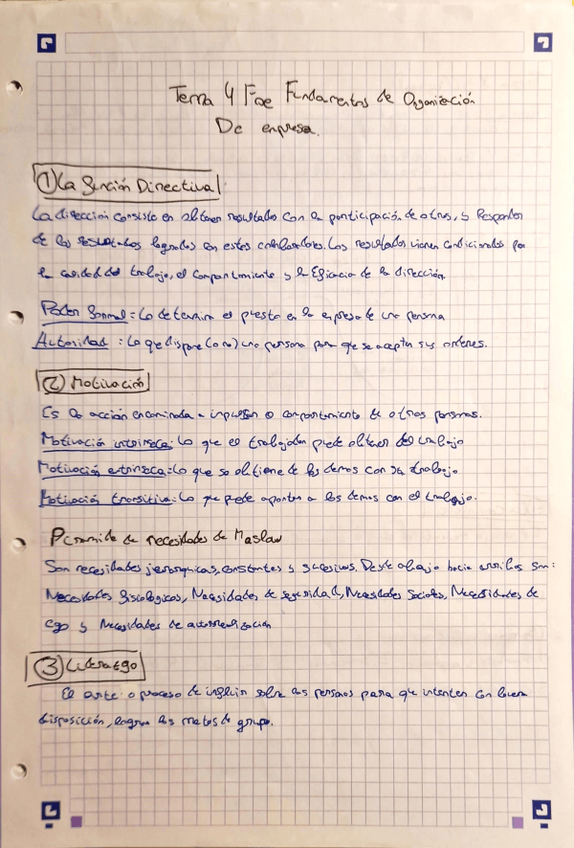 Tema 4 Foe Fundamentos de Organización
De empresa.
① La Función Directiva
La dirección consiste en obtener resultados con la participación de otros, y Responder
de los resultados logrados con estos colaboradores. Los resultados vienen condicionados por
la calidad del trabajo, el comportamiento y la Eficacia de la dirección.
Poder formal: Lo determina el puesto en la empresa de una persona
Autoridad: Lo que dispone (o no) una persona para que se acepten sus ordenes.
② Motivación
Es la acción encaminada a impulsar el comportamiento de otras personas.
Motivación intrínseca: Lo que el trabajador puede obtener del trabajo
Motivación extrínseca: Lo que se obtiene de los demas con su trabajo
Motivación transitiva: Lo que puede aportar a los demas con el trabajo.
Piramide de necesidades de Maslow
Son necesidades jerarquicas, constantes y sucesivas. Desde abajo hacia arriba son:
Necesidades fisiologicas, Necesidades de seguridad, Necesidades Sociales, Necesidades de
ego y Necesidades de autorrealización
③ Liderazgo
El arte o proceso de influir sobre las personas para que intenten con buena
disposición, lograr las metas de grupo.